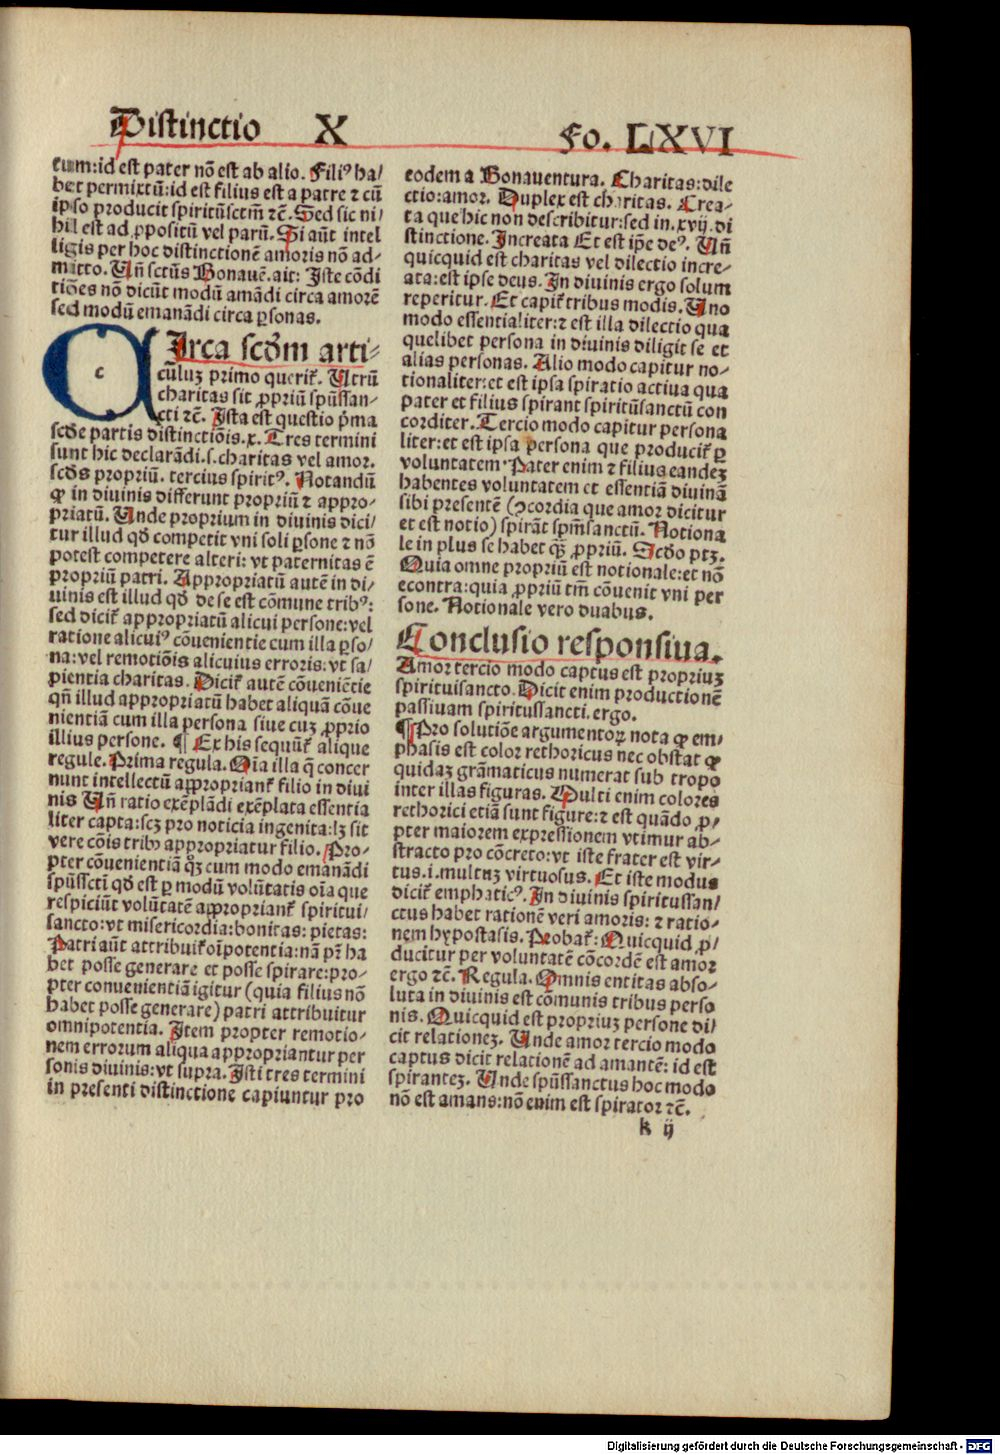 Distinctio X Fo. LXVI
tum:id est pater nō est ab alio. Fili⁹ ha/
bet permixtū:id est filius est a patre ⁊ cū
ipso producit spiritūsctm̄ ⁊c̄. Sed sic ni/
hil est ad ꝓpositū vel parū. Si aūt intel
ligis per hoc distinctionē amoris nō ad-
mitto. Vn̄ sctūs Bonauē. ait: Iste cōdi
tiōes nō dicūt modū amādi circa amorē
sed modū emanādi circa ꝑsonas.
c
Irca scd̄m arti-
culuꝫ primo querit᷑. Vtrū
charitas sit ꝓpriū spūssan-
cti ⁊c̄. Ista est questio p̄ma
scd̄e partis distinctiōis.x. Tres termini
sunt hic declarādi.s. charitas vel amor.
scd̄s propriū. tercius spirit⁹. Notandū
ꝙ in diuinis differunt propriū ⁊ appro-
priatū. Unde proprium in diuinis dici/
tur illud qd̄ competit vni soli ꝑsone ⁊ nō
potest competere alteri: vt paternitas ē
propriū patri. Appropriatū autē in di/
uinis est illud qd̄ de se est cōmune trib⁹:
sed dicit᷑ appropriatū alicui persone:vel
ratione alicui⁹ cōuenientie cum illa ꝑso/
na:vel remotiōis alicuius erroris: vt sa/
pientia charitas. Dicit᷑ autē cōueniētie
qn̄ illud appropriatū habet aliquā cōue
nientiā cum illa persona siue cuꝫ ꝓprio
illius persone. ¶ Ex his sequūt᷑ alique
regule. Prima regula. Oīa illa q̄ concer
nunt intellectū appropriant᷑ filio in diui
nis Vn̄ ratio exēplādi exēplata essentia
liter capta:scꝫ pro noticia ingenita:lꝫ sit
vere cōis trib⁹ appropriatur filio. Pro-
pter cōuenientiā qꝫ cum modo emanādi
spūssctī qd̄ est ꝑ modū volūtatis oīa que
respiciūt volūtatē appropriant᷑ spiritui/
sancto:vt misericordia:bonitas: pietas:
Patri aūt attribuit᷑ oīpotentia:nā pr̄ ha
bet posse generare et posse spirare:pro-
pter conuenientiā igitur (quia filius nō
habet posse generare) patri attribuitur
omnipotentia. Item propter remotio-
nem errorum aliqua appropriantur per
sonis diuinis:vt supra. Isti tres termini
in presenti distinctione capiuntur pro
eodem a Bonauentura. Charitas:dile
ctio:amor. Duplex est charitas. Crea-
ta que hic non describitur:sed in.xvij.di
stinctione. Increata Et est ip̄e de⁹. Vn̄
quicquid est charitas vel dilectio incre-
ata:est ipse deus. In diuinis ergo solum
reperitur. Et capit᷑ tribus modis. Uno
modo essentialiter:⁊ est illa dilectio qua
quelibet persona in diuinis diligit se et
alias personas. Alio modo capitur no-
tionaliter:et est ipsa spiratio actiua qua
pater et filius spirant spiritūsanctū con
corditer. Tercio modo capitur persona
liter:et est ipsa persona que producit᷑ ꝑ
voluntatem. Pater enim ⁊ filius eandeꝫ
habentes voluntatem et essentiā diuinā
sibi presentē (ↄcordia que amor dicitur
et est notio) spirāt spm̄sanctū. Notiona
le in plus se habet qꝫ̄ ꝓpriū. Scd̄o ptꝫ.
Quia omne propriū est notionale:et nō
econtra:quia ꝓpriū tm̄ cōuenit vni per
sone. Notionale vero duabus.
Conclusio responsiua.
Amor tercio modo captus est propriuꝫ
spirituisancto. Dicit enim productionē
passiuam spiritussancti. ergo.
¶ Pro solutiōe argumentoꝝ nota ꝙ em-
phasis est color rethoricus nec obstat ꝙ
quidaꝫ grāmaticus numerat sub tropo
inter illas figuras. Multi enim colores
rethorici etiā sunt figure:⁊ est quādo ꝓ/
pter maiorem expressionem vtimur ab-
stracto pro cōcreto:vt iste frater est vir-
tus.i.multuꝫ virtuosus. Et iste modus
dicit᷑ emphatic⁹. In diuinis spiritussan/
ctus habet rationē veri amoris: ⁊ ratio-
nem hypostasis. Probat᷑: Quicquid ꝓ/
ducitur per voluntatē cōcordē est amor
ergo ⁊c̄. Regula. Omnis entitas abso-
luta in diuinis est cōmunis tribus perso
nis. Quicquid est propriuꝫ persone di/
cit relationeꝫ. Unde amor tercio modo
captus dicit relationē ad amantē: id est
spiranteꝫ. Unde spūssanctus hoc modo
nō est amans:nō enim est spirator ⁊c̄.
k ij
Digitalisierung gefördert durch die Deutsche Forschungsgemeinschaft - DFG